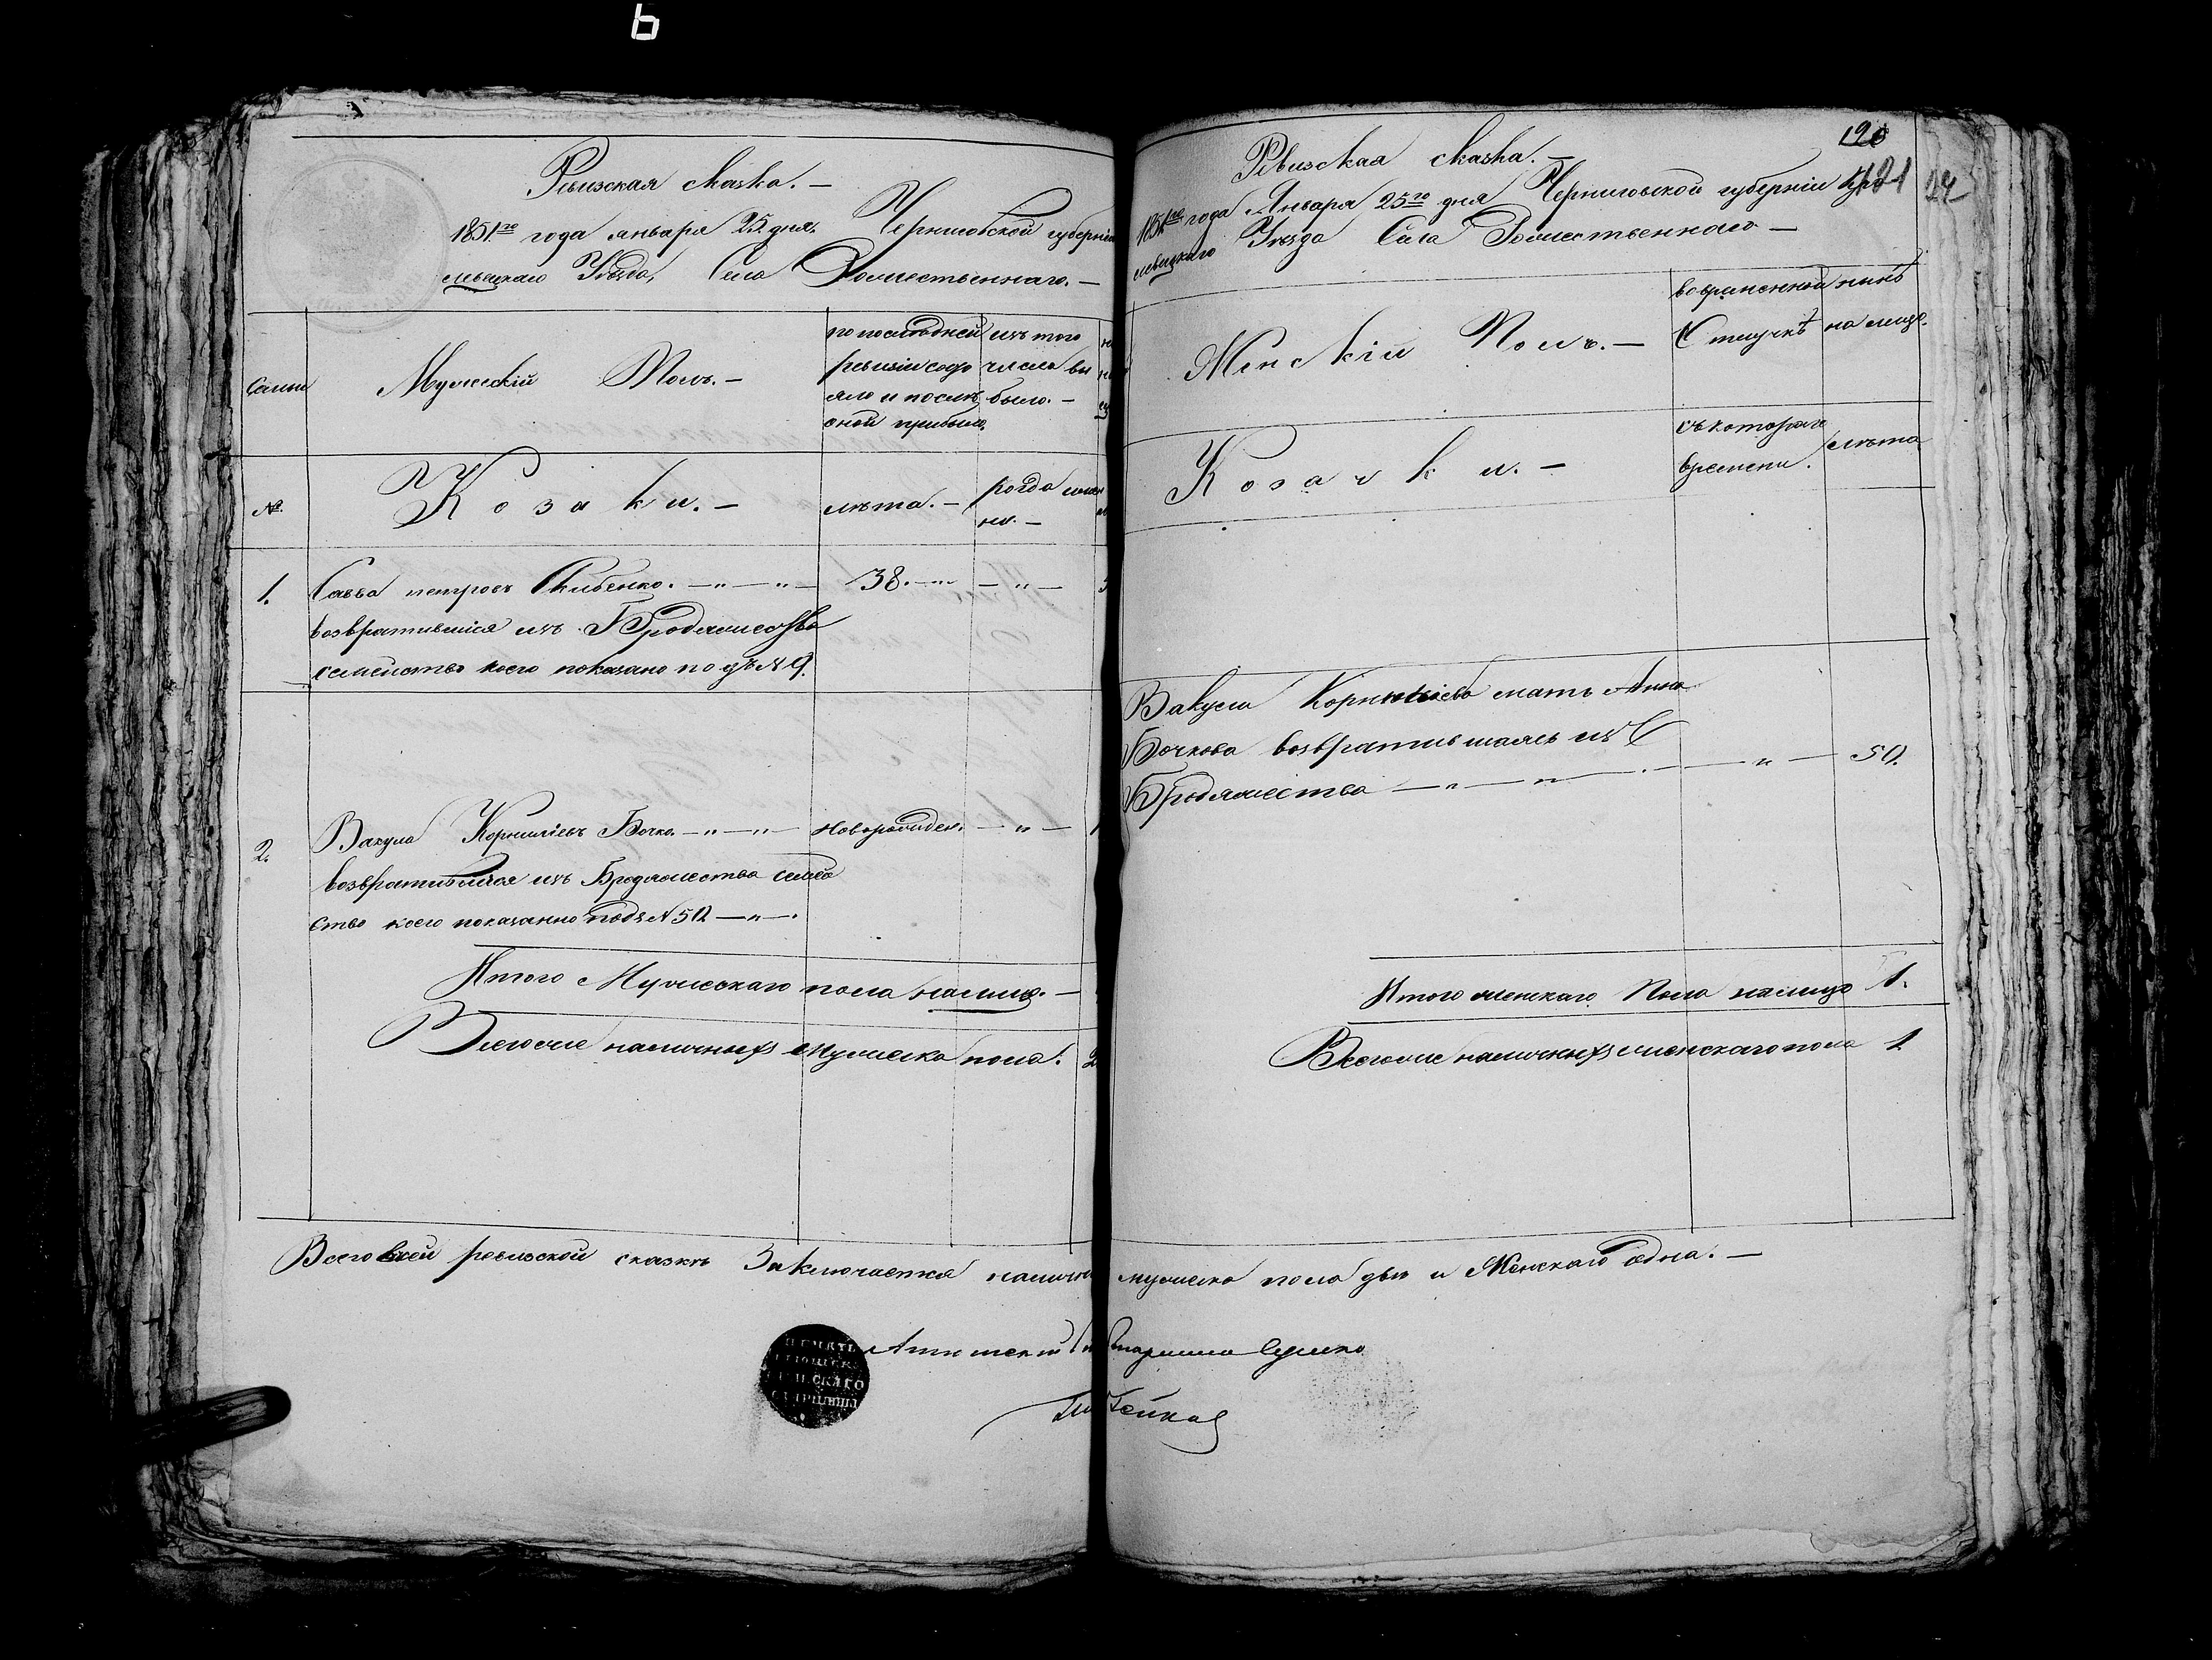 6
Ревизская сказка. —
1851.го года января 25. дня. Черниговской губерніи
левецкаго Уезда, Села Рожественнаго. —
Семьи
Мужескій Полъ. —
по последней
ревизіи состо
яло и после
оной прибыло.
изъ того
числа вы
было. —
№
Козаки. —
лета. —
когда имен
но. —
1.
Савва петровъ Скибенко. — „ — „ —
38. — „
— „ —
возвратившійся изъ Бродяжества
семейство коего показано подъ № 9.
2.
Вакула Корниліевъ Бочко. — „ — „ —
новорожден.
— „ —
возвратившійся изъ Бродяжества семей
ство коего показанно подъ № 50 — „ — .
Итого Мужескаго пола налицо. —
Всего же наличныхъ мужеска пола. 2
Ревизская сказка. —
1851го года Января 25го дня Черниговской губерніи Кро
левецкаго Уезда Села Рожественнаго —
190
121
Женскій Полъ. —
во временной
Отлучке
ныне
на лицо.
Козачки. —
съ котораго
времени.
лета
Вакулы Корниліева мать Анна
Бочкова возвратившаясь изъ
Бродяжества — „ — „ — . — „ — 50.
Итого женскаго Пола налицо 1.
Всего же наличныхъ женскаго пола 1
Всего в сей ревизской сказке Заключается наличн мужеска пола два и Женскаго одна. —
Старшина Сушко
ПЕЧАТЬ
СКАГО